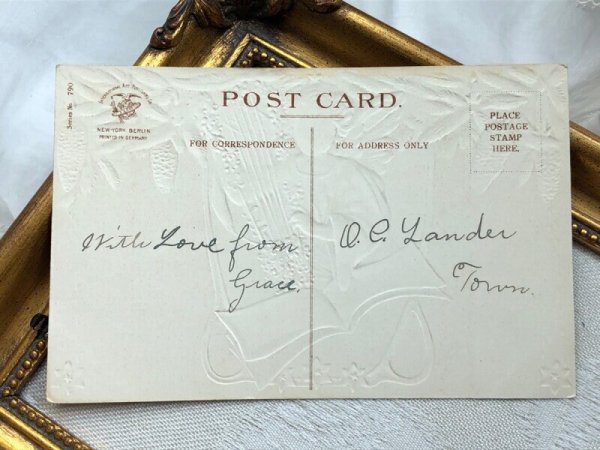 Series No. 790
INTERNATIONAL ART PUBLISHING CO.
NEW-YORK BERLIN
PRINTED IN GERMANY
POST CARD.
FOR CORRESPONDENCE
FOR ADDRESS ONLY
PLACE
POSTAGE
STAMP
HERE.
With Love from
Grace.
O. C. Lander
Town.